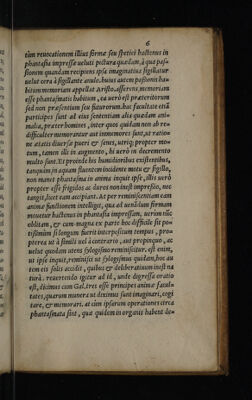 6
tim revocationem illius formæ seu speciei hactenus in
phantasia impressæ veluti pictura quædam, à qua pas-
sionem quandam recipiens ipse imaginatus sigillatur
velut cera à sigillante anulo. huius autem passionis ha-
bitum memoriam appellat Aristo. asserens, memoriam
esse phantasmatis habitum, ea verò est præteritorum
sed non præsentium seu futurorum. hac facultate etiã
participes sunt ad eius sententiam alia quædam ani-
malia, præter homines, inter quos quidam non ab re
difficulter memorantur aut immemores sunt, ut ratio-
ne ætatis diversæ pueri & senes, utriq; propter mo-
tum, tamen illi in augmento, hi verò in decremento
multo sunt. Et proinde his humidioribus existentibus,
tanquam in aquam fluentem incidente motu & sigillo,
non manet phantasma in anima inquit ipse, illis verò
propter esse frigidos ac duros non inest impressio, nec
tangit, licet eam accipiant. At per reminiscentiam eam
animæ functionem intelligit, qua ad venãdum firmam
movetur hactenus in phantasia impressam, verùm túc
oblitam, & cum magna ex parte hoc difficile sit po-
tissimùm si longum fuerit interpositum tempus, pro-
pterea ut à simili vel contrario, aut propinquo, ac
velut quodam utens sylogismo reminiscitur. est enim,
ut ipse inquit, reminisci ut sylogismus quidam, hoc au
tem eis solis accidit, quibus & deliberativum inest na
tura. revertendo igitur ad id, unde digressa oratio
est, dicimus cum Gal. tres esse principes animæ facul-
tates, quarum munera ut deximus sunt imaginari, cogi
tare, & memorari. at cùm ipsarum operationes circa
phantasmata sint, quæ quidem in organis habent de-